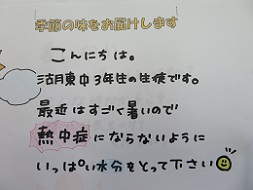 季節の味をお届けします
こんにちは。
湖東中3年生の生徒です。
最近はすごく暑いので
熱中症にならないように
いっぱい水分をとって下さい